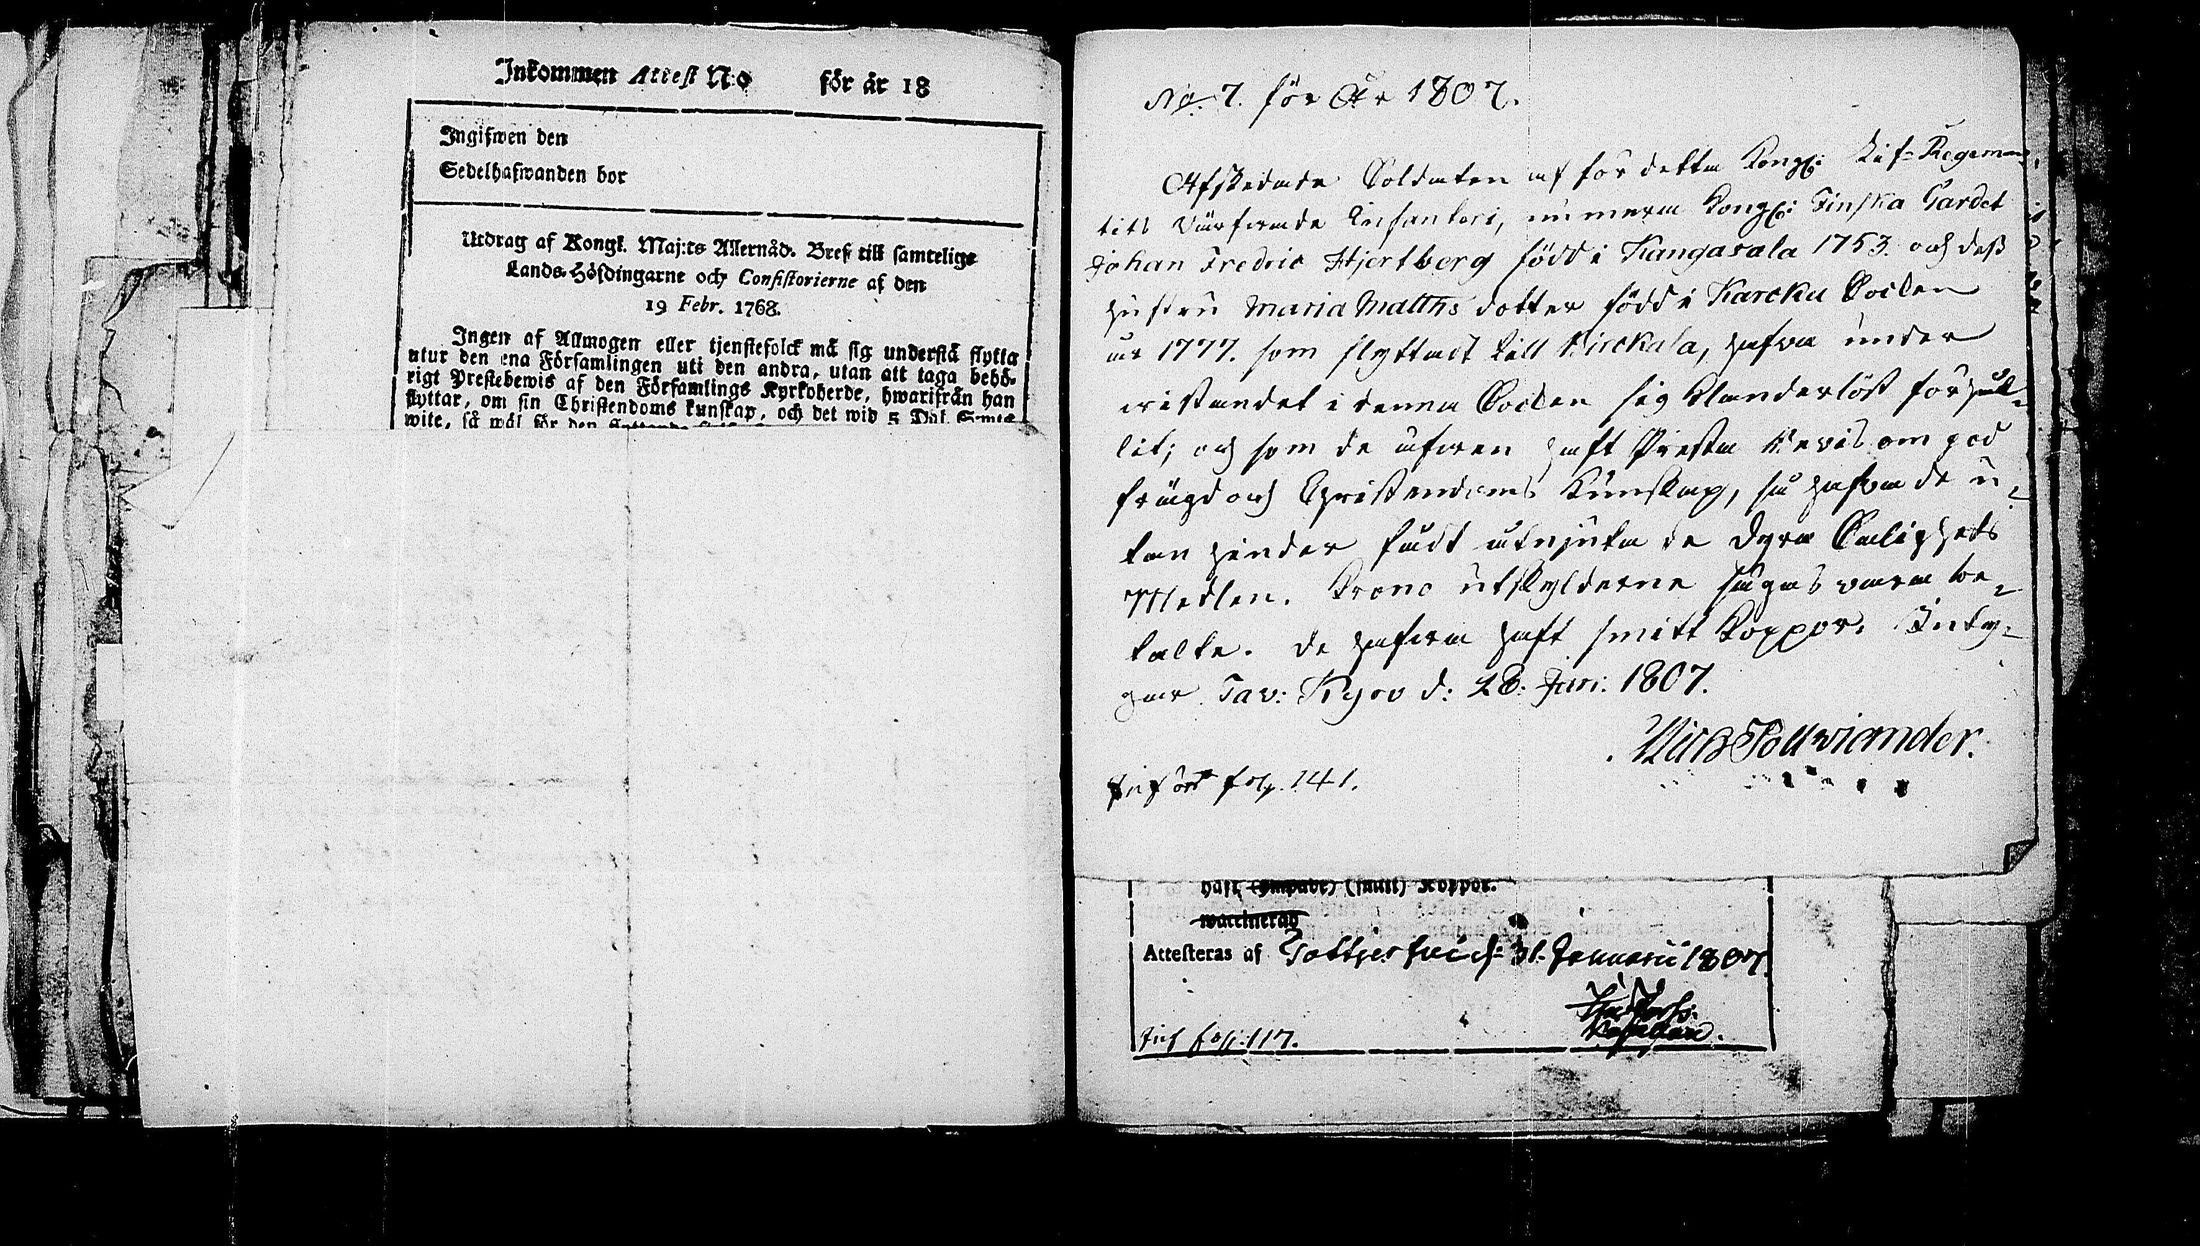 Inkommen Attest No för år 18
Ingifwen den
Sedelhafwanden bor
Utdrag af Kongl. Maj:ts Allernåd. Bref till samtelige
Lands-Höfdingarne och Consistorierne af den
19 Febr. 1768.
Ingen af Allmogen eller tjenstefolck må sig understå flytta
utur den ena Församlingen uti den andra, utan att taga behö-
rigt Prestebewis af den Församlings Kyrkoherde, hwarifrån han
flyttar, om sin Christendoms kunskap, och det wid 5 Dal. S:mts
wite, så wäl för den
No. 7. för År 1807.
Afskedade Soldaten af för detta Kongl: Lif-Regemen
tets Värfvade Infanteri, numera Kongl: Finska Gardet
Johan Fredric Hjertberg född i Kangasala 1753. och dess
hustru Maria Matths dotter född i Karcku Socken
år 1777. som flyttadt till Birckala, hafva under
vistandet i denna Socken sig Klanderlöst förhål-
lit; och som de äfven haft Presta Bevis om god
frägd och Christendoms Kunskap, så hafva de u-
tan hinder fådt utnjuta de Dyra Salighets
Medlen. Krono utskylderne sägas vara be-
talte. De hafva haft smitt Koppor. Inty-
gar Tav: Kyro d: 28: Juni: 1807.
Nils Pollviander.
Infört fol. 141.
haft (ympade) (smitt) Koppor.
waccinerad
Attesteras af d: 31. Januarii 1807.
Inf fol: 117.